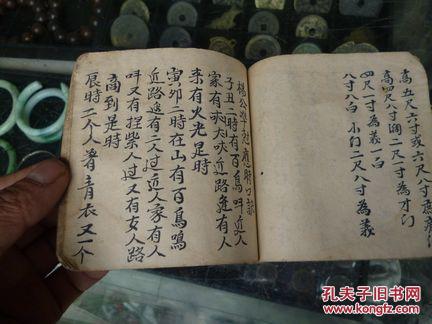 高五尺六寸或六尺八寸
高四尺八寸阔二尺一寸為才门
四尺一寸為義一白
八寸八白 小门二尺八寸為義
楊公
子丑二時有百鳥呌近人
家有吠犬吠近路進有人
来有火光是時
寅卯二時在山有百鳥鳴
近路進有二人过近人家有人
呌又有担柴人过又有女人路
啇到是時
辰時一二个人着青衣又一个
孔夫子旧书网